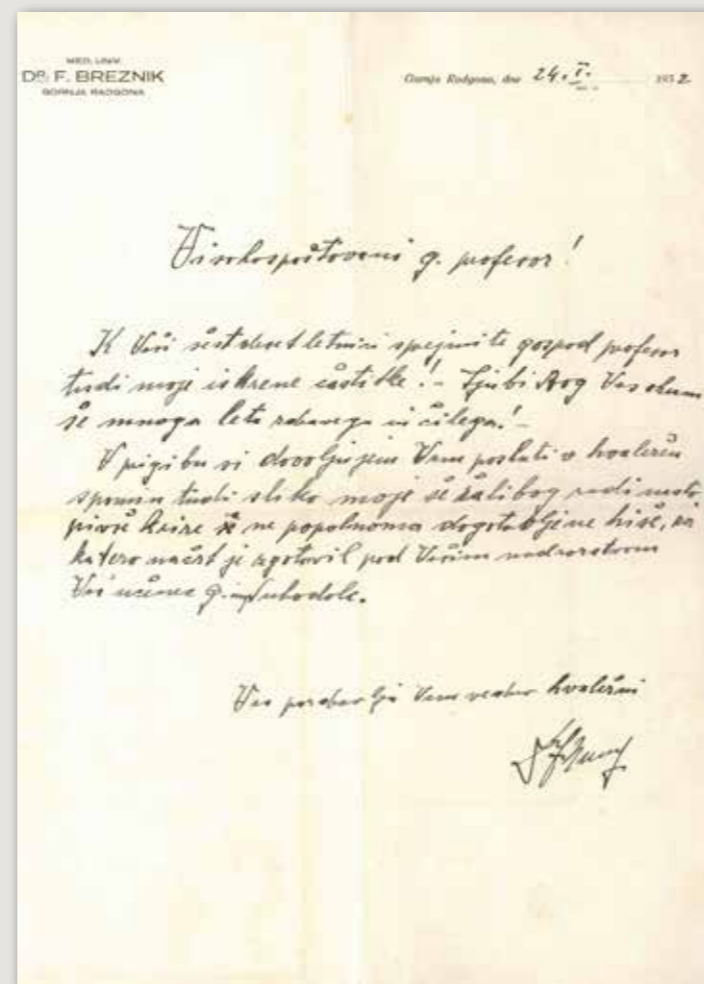 MED. UNIV.
DR. F. BREZNIK
GORNJA RADGONA
Gornja Radgona, dne 24. I. 1932
Visokospoštovani g. profesor!
K Vaši šestdesetletnici sprejmite gospod profesor
tudi moje iskrene častitke! - Ljubi Bog Vas ohrani
še mnoga leta zdravega in čilega! -
V prigibu si dovoljujem Vam poslati v hvaležen
spomin tudi sliko moje še žalibog radi nasto-
pivše krize ne popolnoma dogotovljene hiše, za
katero načrt je zgotovil pod Vašim nadzorstvom
Vaš učenec g. ing. Suhadolc.
Vas pozdravlja Vam vedno hvaležni